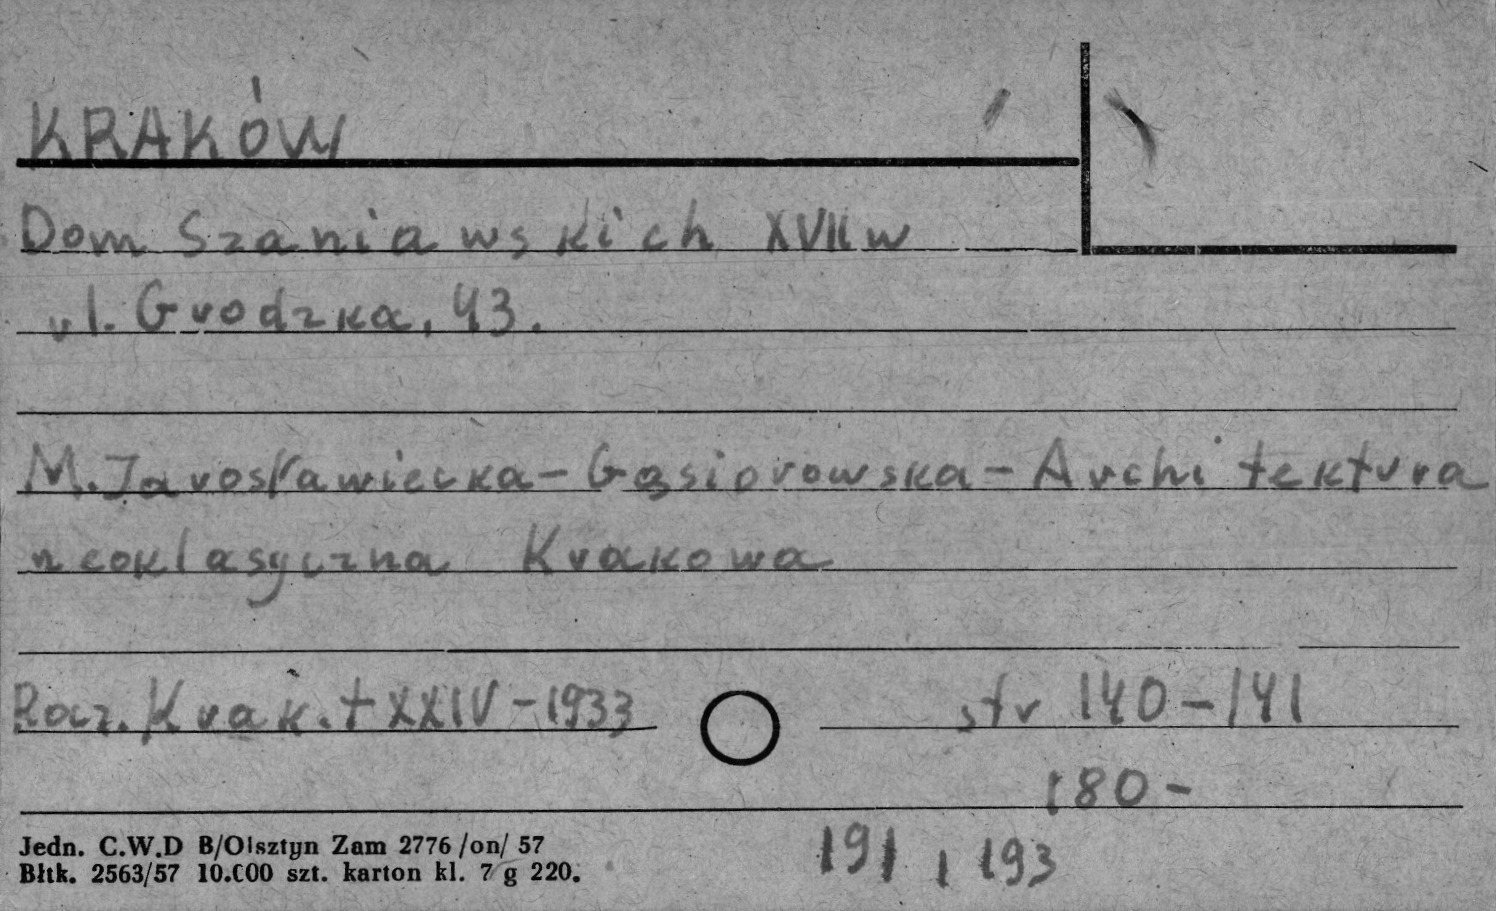 KRAKÓW
Dom Szaniawskich XVII w
ul. Grodzka, 43.
M. Jarosławiecka-Gąsiorowska - Architektura
neoklasyczna Krakowa
Rocz. Krak. t XXIV - 1933 str 140-141
180-
191, 193
Jedn. C.W.D B/Olsztyn Zam 2776/on/ 57
Błtk. 2563/57 10.000 szt. karton kl. 7 g 220.